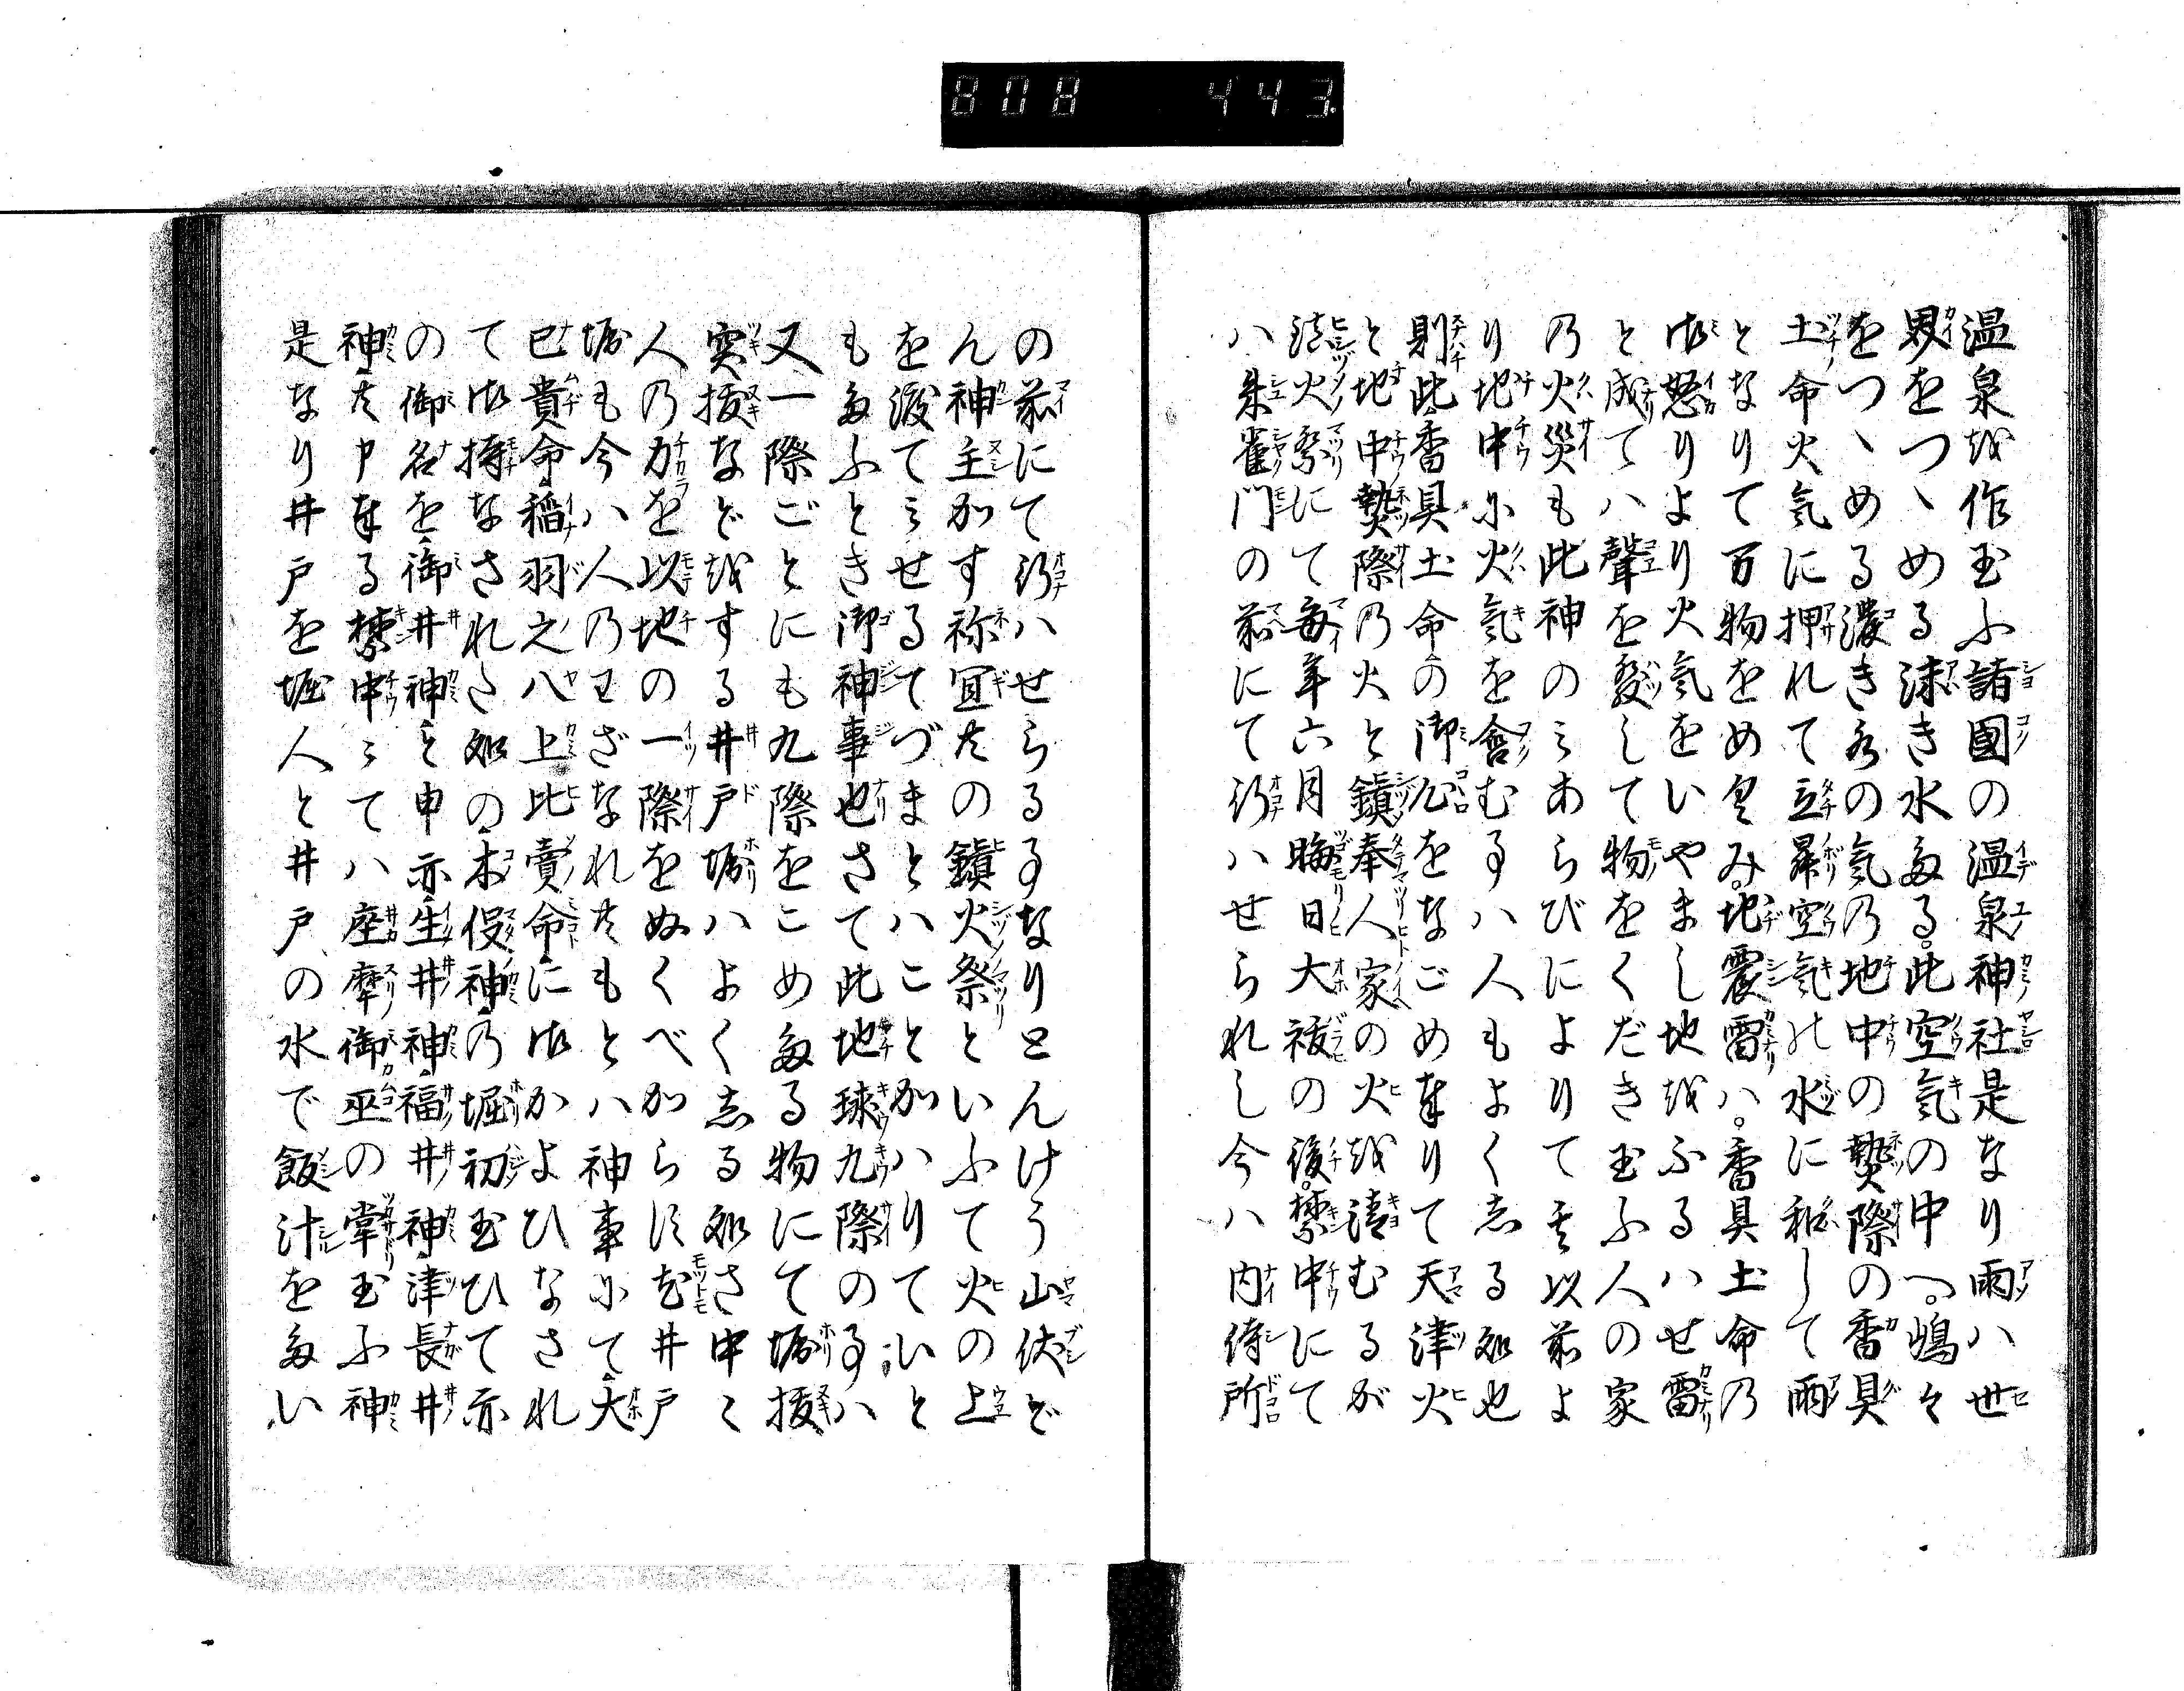 808 443
温泉越作玉ふ諸國の温泉神社是なり雨ハ世
界をつゝめる沫き水多る。此空氣の中へ。嶋々
をつゝめる濃き水の氣乃地中の㷱際の香具
土命火気に押れて立昇空氣の水に和して雨
となりて万物をめぐみ。地震雷ハ。香具土命乃
御怒りより火氣をいやまし地越ふるハせ雷
と成てハ聲を発して物をくだき玉ふ人の家
乃火災も此神のミあらびによりて其以前よ
り地中に火氣を含むるハ人もよく志る処也
則此香具土命の御心をなごめ奉りて天津火
と地中㷱際乃火と鎮奉人家の火越清むるが
鎮火祭にて毎年六月晦日大祓の後。禁中にて
ハ朱雀門の前にて行ハせられし今ハ内侍所
の前にて行ハせらるゝなりとんけう山伏ど
ん神主かす祢宜たの鎮火祭といふて火の上
を渡てミせるてづまとハことかハりていと
も多ふとき御神事也さて此地球九際のハ
又一際ごとにも九際をこめ多る物にて堀抜
突抜など越する井戸堀ハよく志る処さ申く
人の力を以地の一際をぬくべからに尤井戸
堀も今ハ人のわざなれたもとハ神事にて大
已貴命稲羽之八上比賣命に御かよひなされ
て御持なされた処の木俣神乃堀初玉ひて亦
の御名を御井神と申亦生井神福井神津長井
神た申奉る禁中にてハ座摩御巫の掌玉ふ神
是なり井戸を堀人と井戸の水で飯汁を多い